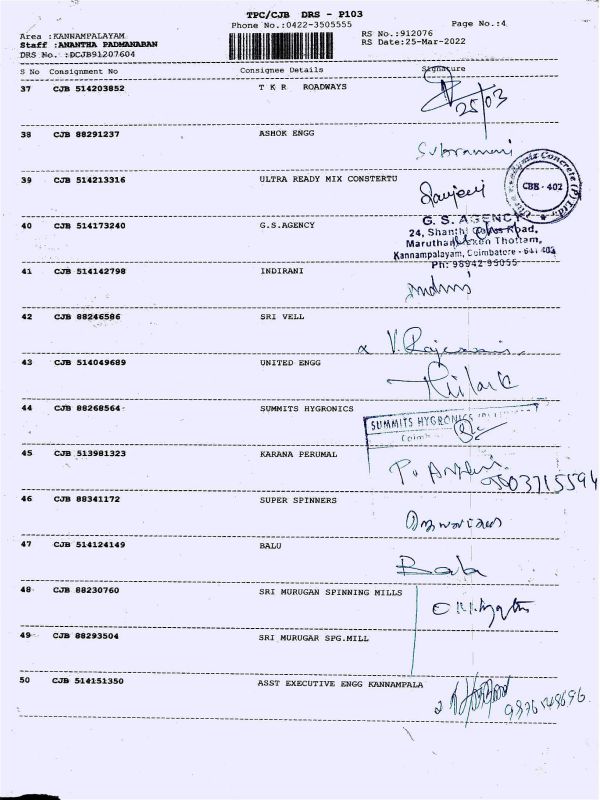 TPC/CJB DRS - P103
Phone No.:0422-3505555 Page No.:4
Area :KANNAMPALAYAM RS No.:912076
Staff :ANANTHA PADMANABAN RS Date:25-Mar-2022
DRS No. :DCJB91207604
S No Consignment No Consignee Details Signature
37 CJB 514203852 T K R ROADWAYS
25/03
38 CJB 88291237 ASHOK ENGG
Subramani
39 CJB 514213316 ULTRA READY MIX CONSTERTU
CBE - 402
40 CJB 514173240 G.S.AGENCY
G. S. AGENCY
24, Shanthi Road,
Thottam,
Kannampalayam, Coimbatore - 641 402
Ph: 98942 95055
41 CJB 514142798 INDIRANI
42 CJB 88246586 SRI VELL
43 CJB 514049689 UNITED ENGG
44 CJB 88268564 SUMMITS HYGRONICS
SUMMITS HYGRONICS
45 CJB 513981323 KARANA PERUMAL
46 CJB 88341172 SUPER SPINNERS
47 CJB 514124149 BALU
Bala
48 CJB 88230760 SRI MURUGAN SPINNING MILLS
49 CJB 88293504 SRI MURUGAR SPG.MILL
50 CJB 514151350 ASST EXECUTIVE ENGG KANNAMPALA